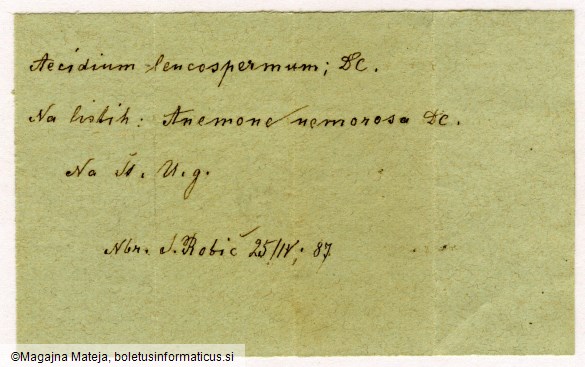 Aecidium leucospermum; DC.
Na listih: Anemone nemorosa DC.
Na Š. U. g.
Nbr. S. Robič 25/IV; 87.
©Magajna Mateja, boletusinformaticus.si